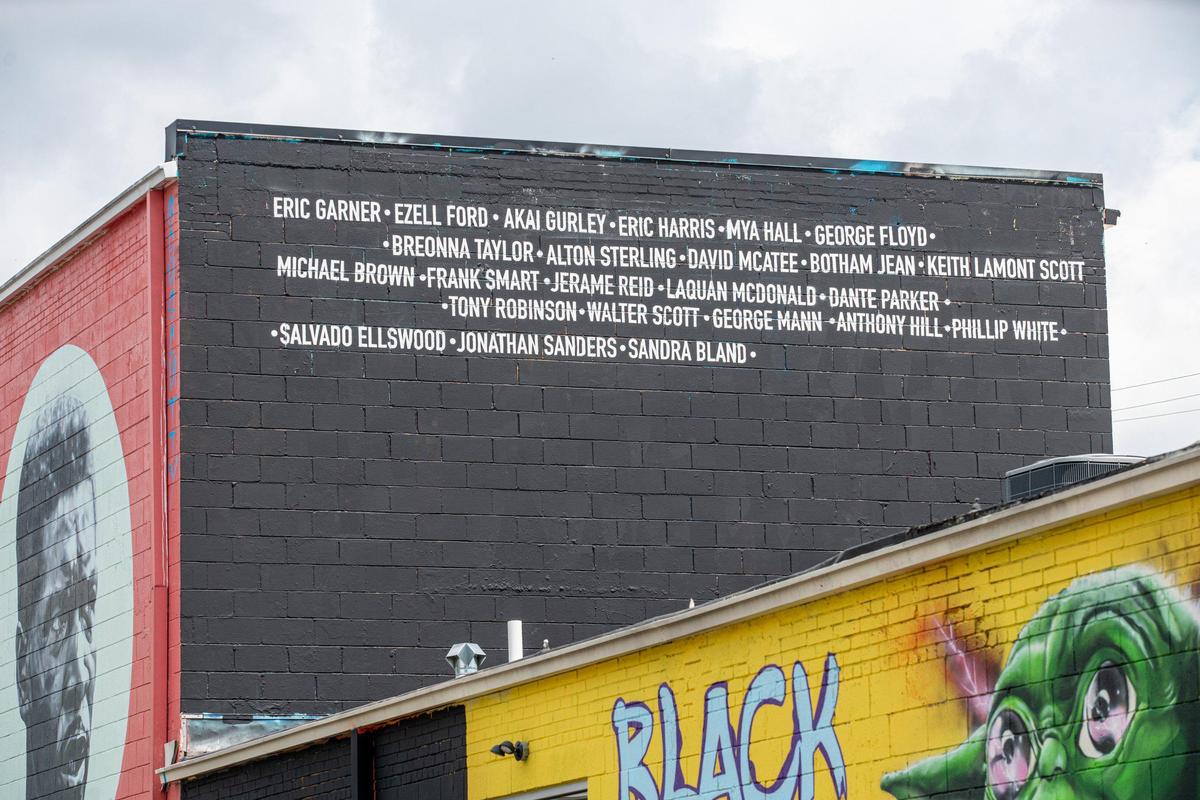 ERIC GARNER • EZELL FORD • AKAI GURLEY • ERIC HARRIS • MYA HALL • GEORGE FLOYD •
• BREONNA TAYLOR • ALTON STERLING • DAVID MCATEE • BOTHAM JEAN • KEITH LAMONT SCOTT
MICHAEL BROWN • FRANK SMART • JERAME REID • LAQUAN MCDONALD • DANTE PARKER •
• TONY ROBINSON • WALTER SCOTT • GEORGE MANN • ANTHONY HILL • PHILLIP WHITE •
• SALVADO ELLSWOOD • JONATHAN SANDERS • SANDRA BLAND •
BLACK